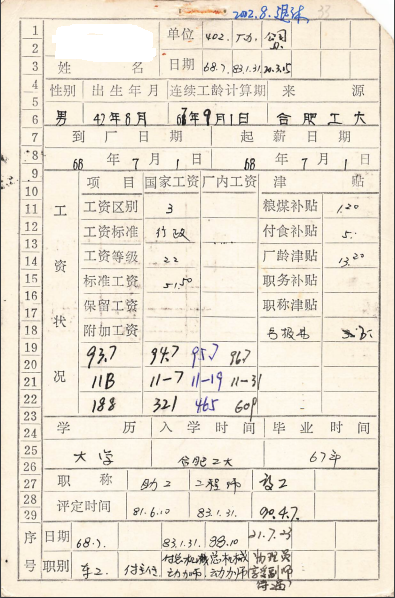 2002.8.退休 33
单位 402. 公司
姓 名 日期 68.7. 83.1.31.
性别 出生年月 连续工龄计算期 来 源
男 47年8月 67年9月1日 合肥工大
到厂日期 起薪日期
68年7月1日 68年7月1日
工资状况
项目 国家工资 厂内工资 津贴
工资区别 3 粮煤补贴 1.20
工资标准 行政 付食补贴 5.
工资等级 22 厂龄津贴 13.20
标准工资 51.50 职务补贴
保留工资 职称津贴
附加工资
93.7 94.7 95.7 96.7
11B 11-7 11-19 11-31
188 321 465 609
学历 入学时间 毕业时间
大学 合肥工大 67年
职称 助工 工程师 高工
评定时间 81.6.10 83.1.31. 90.4.7.
序号 日期 68.7. 83.1.31. 88.10 21.7.23
职别 付总机械动力师. 总机械动力师
1
2
3
4
5
6
7
8
9
10
11
12
13
14
15
16
17
18
19
20
21
22
23
24
25
26
27
28
29